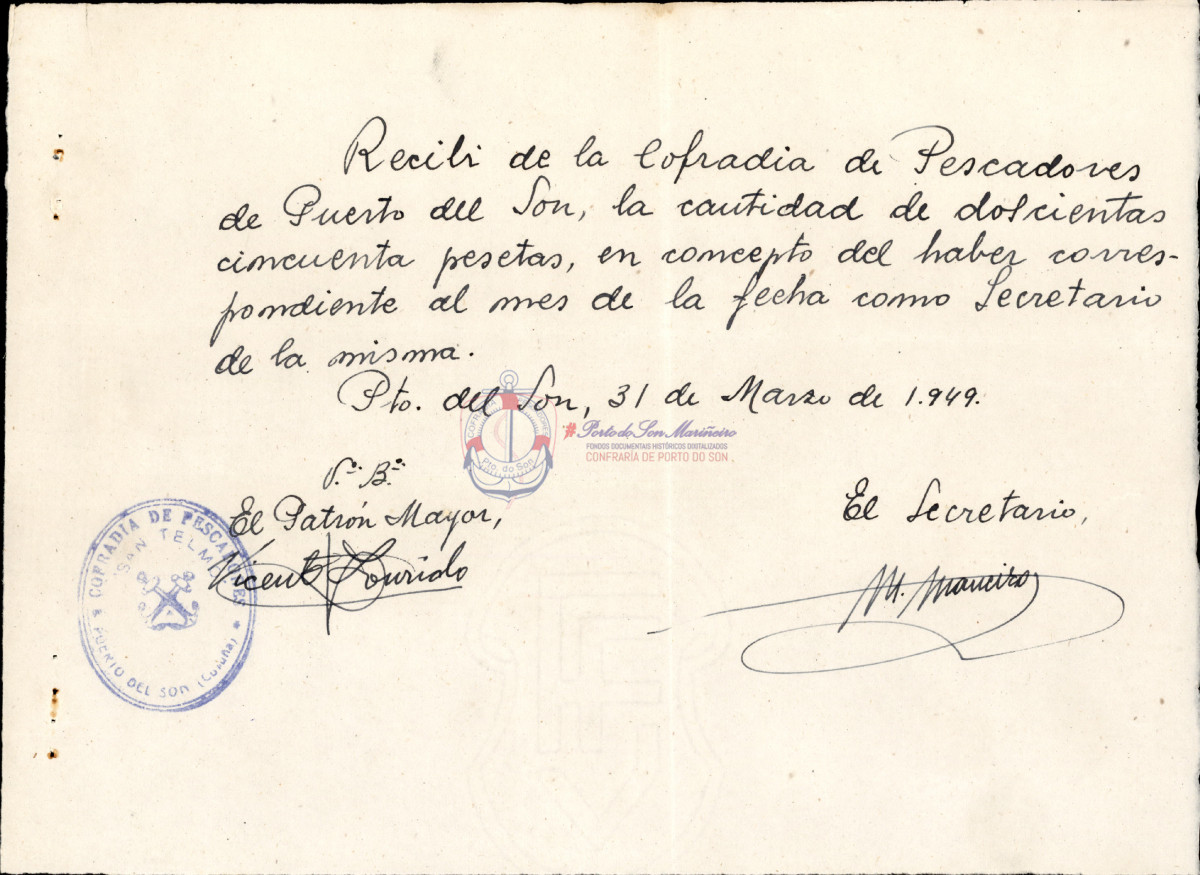 Recibi de la Cofradia de Pescadores
de Puerto del Son, la cantidad de doscientas
cincuenta pesetas, en concepto del haber corres-
pondiente al mes de la fecha como Secretario
de la misma.
Pto. del Son, 31 de Marzo de 1.949.
#PortodoSonMariñeiro
FONDOS DOCUMENTAIS HISTÓRICOS DIGITALIZADOS
CONFRARÍA DE PORTO DO SON
Pto. do Son
V.º B.º
El Patrón Mayor,
El Secretario,
Vicente Lourido
M. Maneiro
COFRADIA DE PESCADORES
SAN TELMO
PUERTO DEL SON (Coruña)